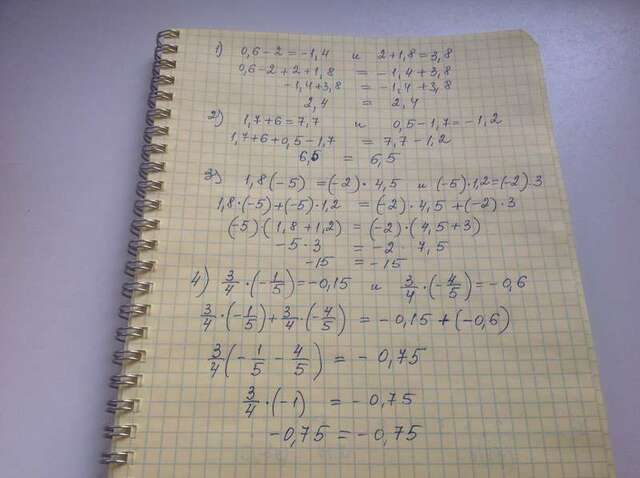 1) 0,6-2=-1,4 и 2+1,8=3,8
0,6-2+2+1,8 = -1,4+3,8
-1,4+3,8 = -1,4+3,8
2,4 = 2,4
2) 1,7+6=7,7 и 0,5-1,7=-1,2
1,7+6+0,5-1,7 = 7,7-1,2
6,5 = 6,5
3) 1,8(-5) =(-2)·4,5 и (-5)·1,2=(-2)·3
1,8·(-5)+(-5)·1,2 = (-2)·4,5+(-2)·3
(-5)·(1,8+1,2) = (-2)·(4,5+3)
-5·3 = -2·7,5
-15 = -15
4) 3/4·(-1/5)=-0,15 и 3/4·(-4/5)=-0,6
3/4·(-1/5)+3/4·(-4/5) = -0,15+(-0,6)
3/4(-1/5-4/5) = -0,75
3/4·(-1) = -0,75
-0,75 = -0,75